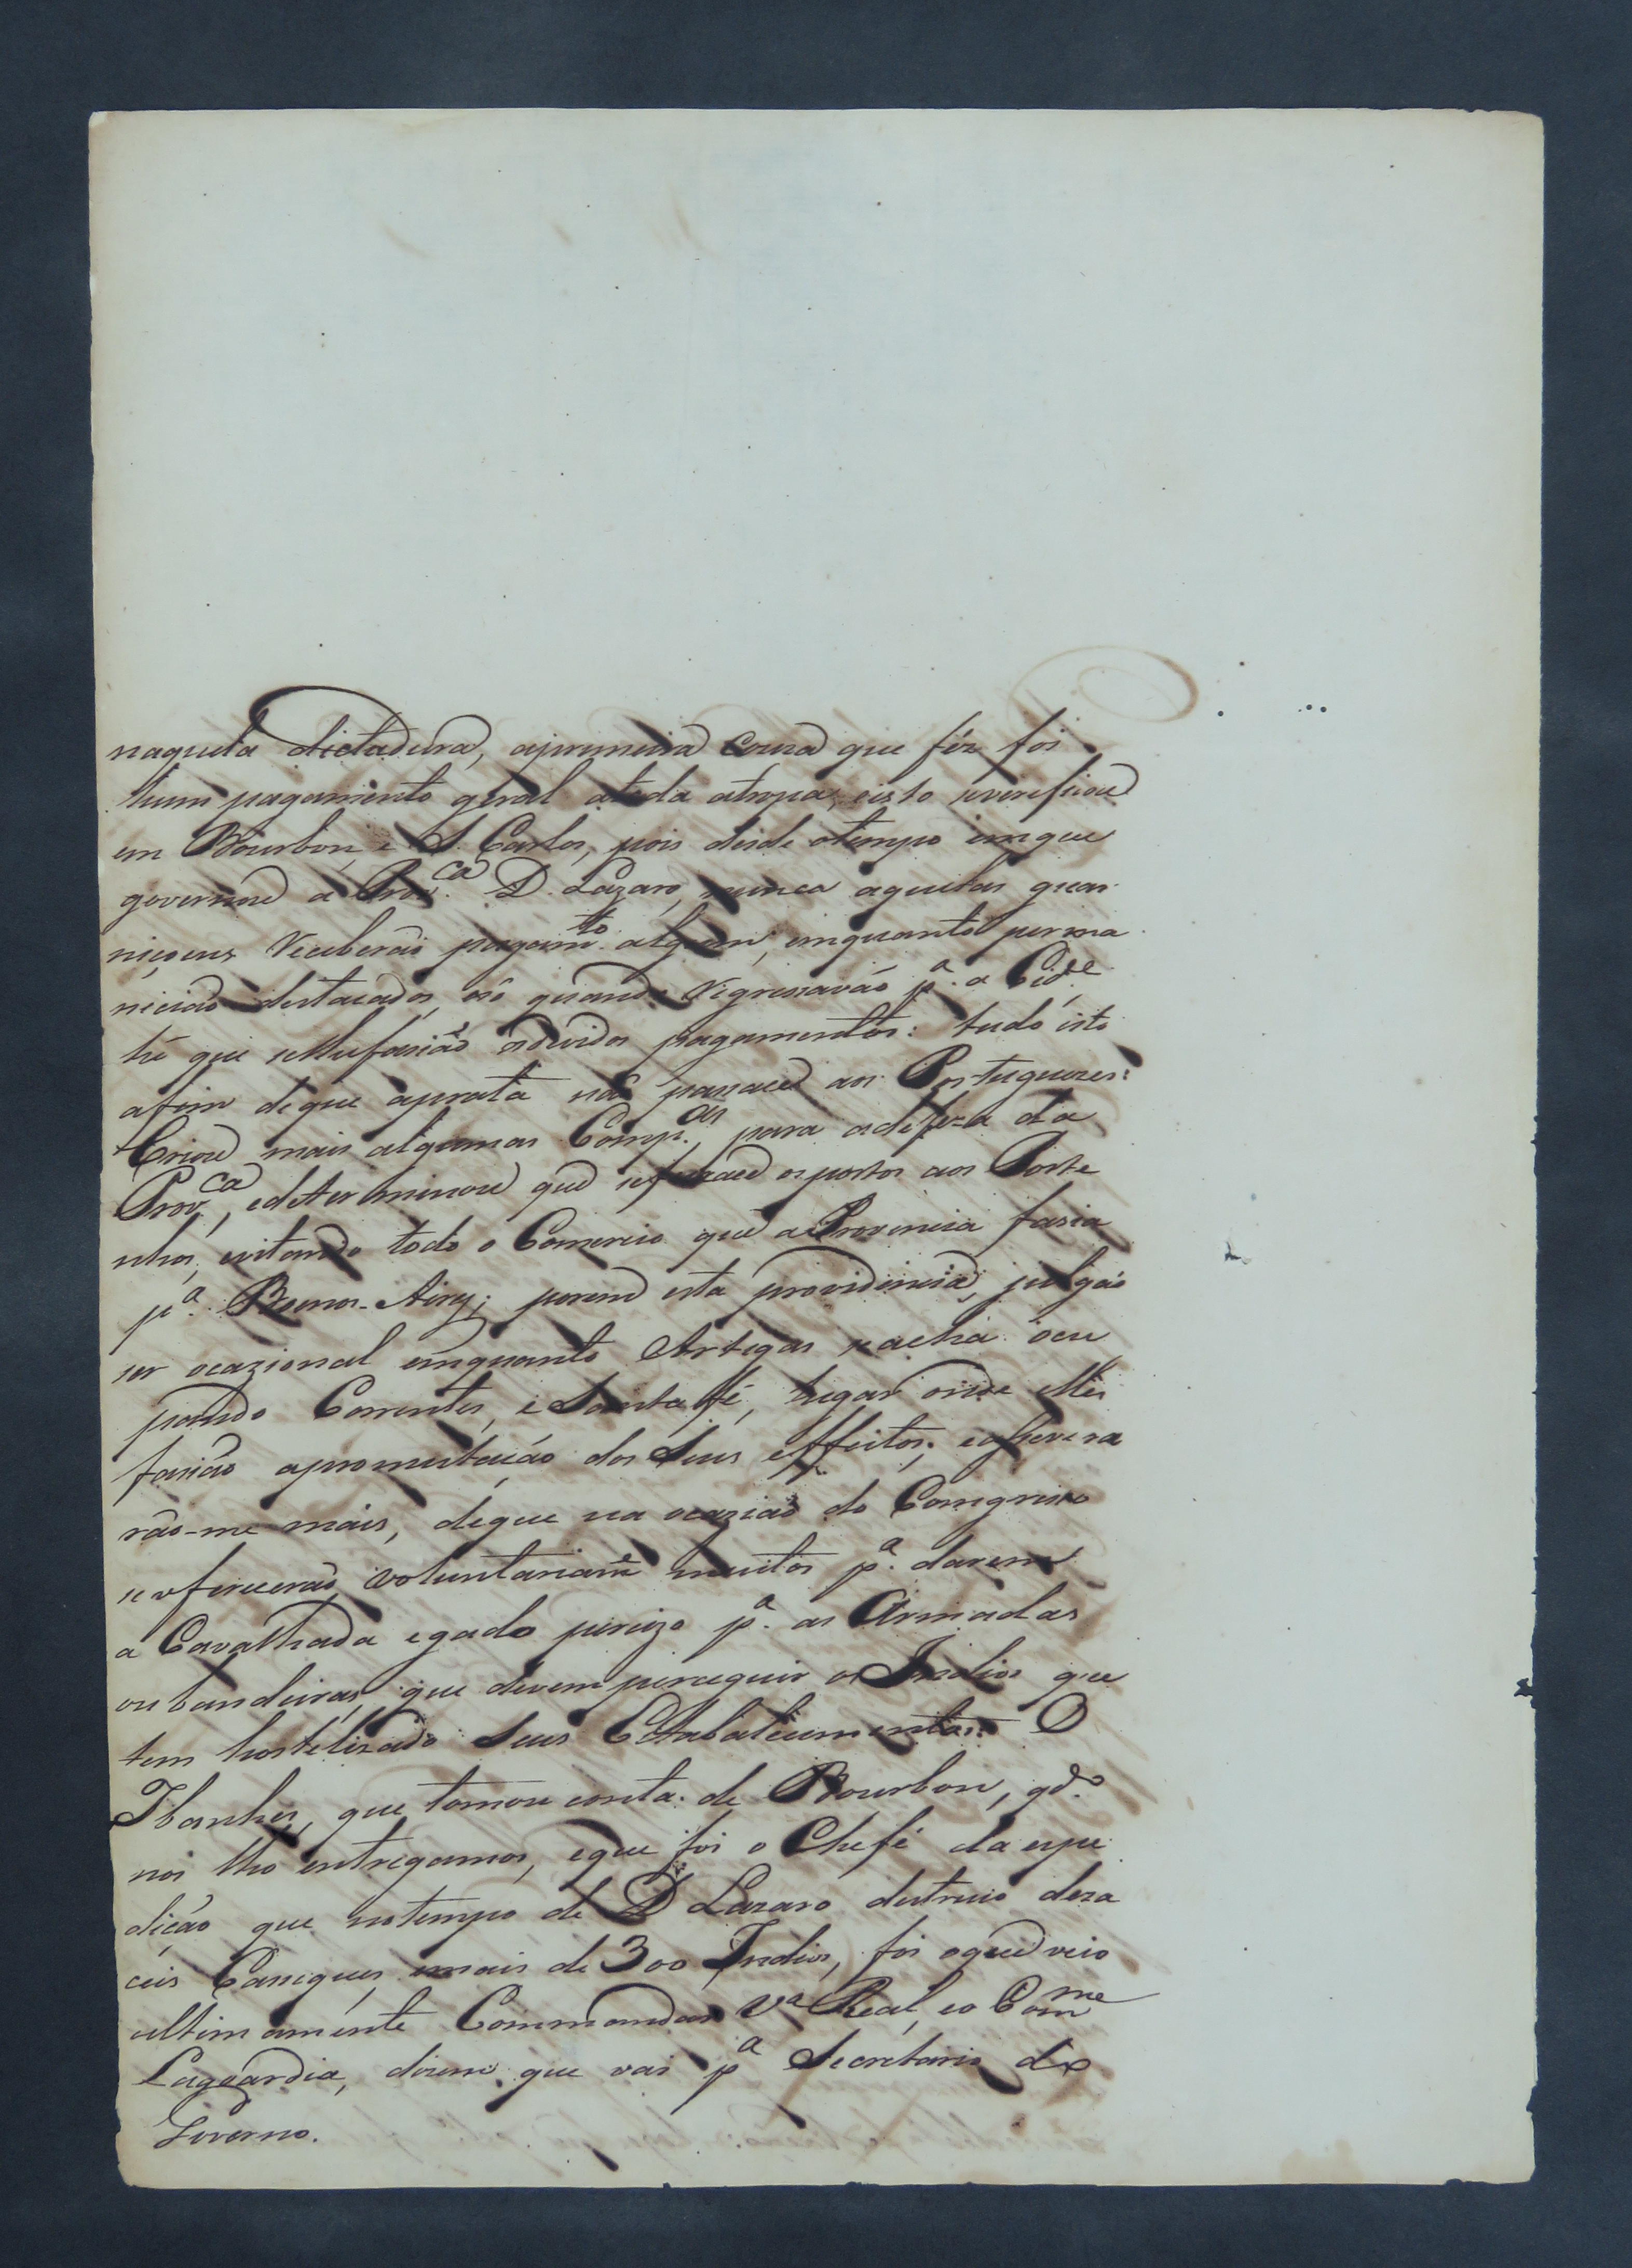 naquela dictadura, aprimeira couza que féz foi
hum pagamento geral atoda atropa, eisto severeficou
em Bourbon, e S. Carlos, pois desde otempo emque
governou a Prov.ca D. Lazaro, nunca aquelas guar
niçoens Receberão pagamto. algum, emquanto perma
nicião destacados, esó quando Regressavão p.a a Cid.e
hé que selhefazião osdevidos pagamentos: tudo isto
afim deque aprata não passace aos Portuguezes:
Criou mais algumas Comp.as, para adefeza da
Prov.ca, edetterminou que sefexace osportos aos Porte
nhos, evitando todo o Comercio que aProvincia fasia
p.a Buenos-Ayres; porem esta providencia, julgão
ser ocazional emquanto Artegas seacha ocu
pando Correntes, e Santa fé, lugar onde elles
fasião apromutação dos Seus effeitos; eassevera
rão-me mais, deque na ocazião do Comgresso
seofrecerão, voluntariamte muitos p.a darem
a Cavalhada egado percizo p.a as Armadas
ou bandeiras, que devem perceguir os Indios que
tem hostelizado Seus Estabalecimentos: O
Ibanhes, que tomou conta de Bourbon, qd.o
nos lho entregamos, eque foi o Chefe da espe
dição que notempo de D Lazaro destruio deza
ceis Cassiques, emais de 300 Indios, foi oque veio
ultimamente Commandar Va Real, eo Comme
Lagoardia, dizem que vai p.a Secretario do
Governo.